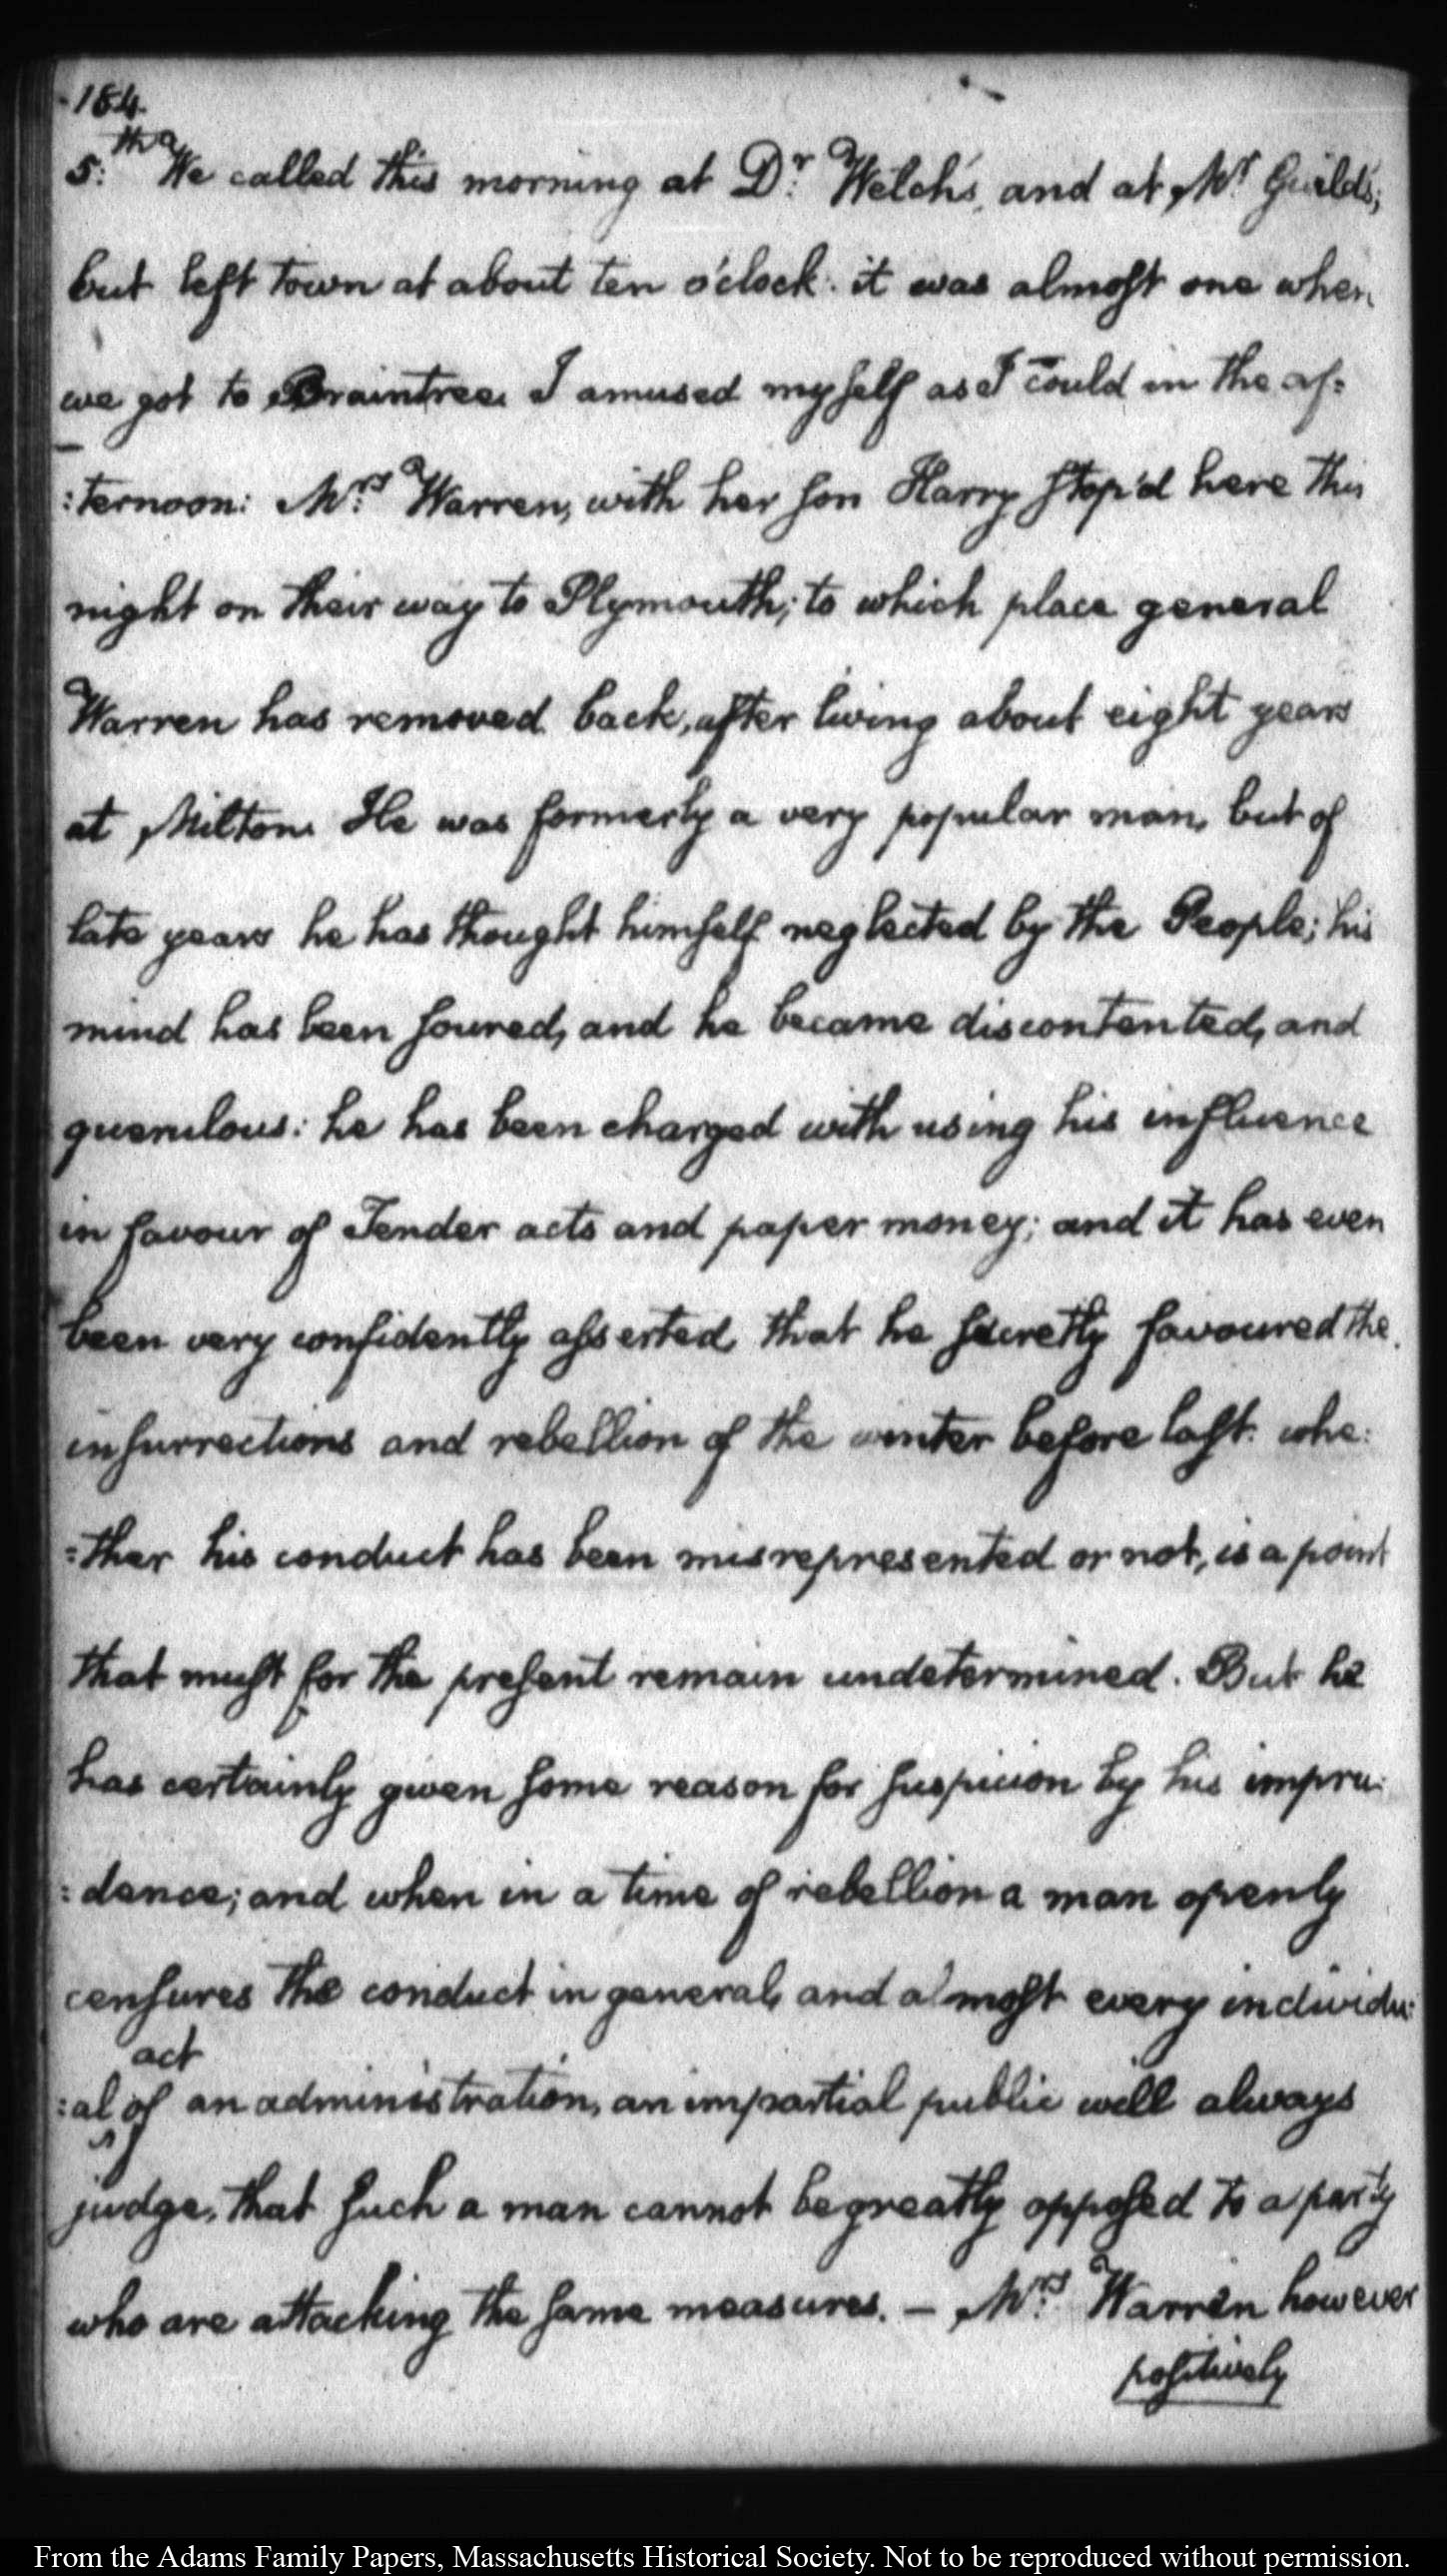 184.
5.th We called this morning at D.r Welch's, and at Mr Guild's;
but left town at about ten o'clock: it was almost one when
we got to Braintree. I amused myself as I could in the af=
:ternoon: M.rs Warren, with her son Harry stop'd here this
night on their way to Plymouth; to which place general
Warren has removed back, after living about eight years
at Milton. He was formerly a very popular man, but of
late years he has thought himself neglected by the People; his
mind has been soured, and he became discontented, and
querulous: he has been charged with using his influence
in favour of Tender acts and paper money; and it has even
been very confidently asserted, that he secretly favoured the
insurrections and rebellion of the winter before last. whe:
:ther his conduct has been misrepresented or not, is a point
that must for the present remain undetermined. But he
has certainly given some reason for suspicion by his impru:
:dence; and when in a time of rebellion a man openly
censures the conduct in general, and almost every individu:
act
:al of an administration, an impartial public will always
judge, that such a man cannot be greatly opposed to a party
who are attacking the same measures. — M.rs Warren however
positively
From the Adams Family Papers, Massachusetts Historical Society. Not to be reproduced without permission.